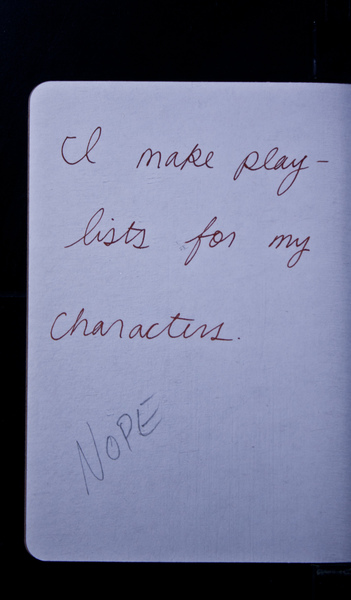 I make play-
lists for my
characters.
NOPE